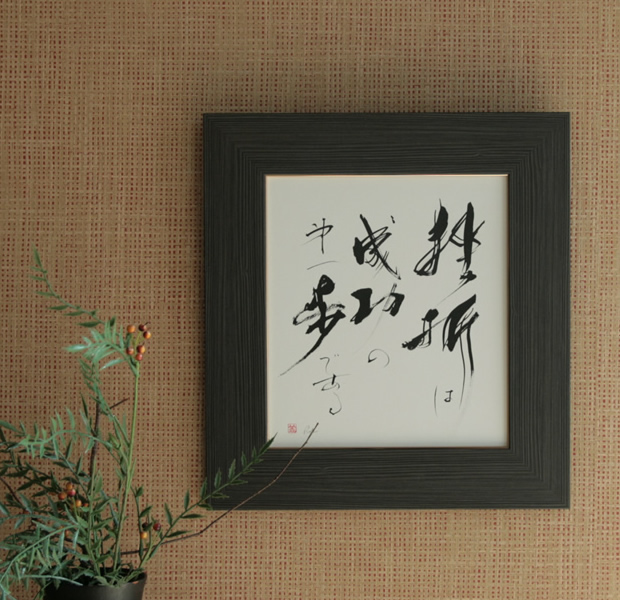 挫折は
成功の
第一歩である